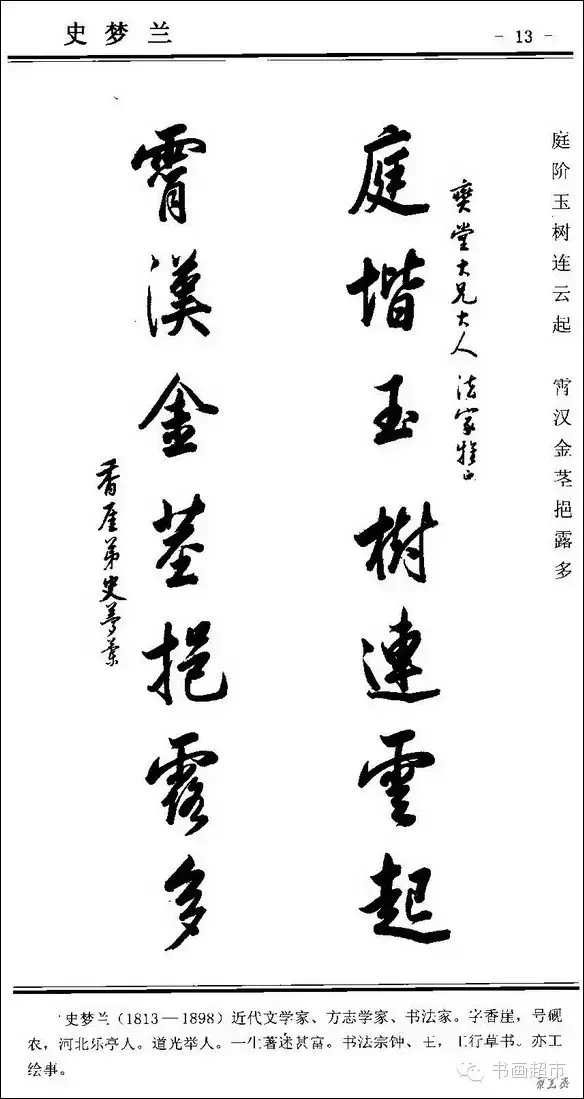 史梦兰
- 13 -
庭阶玉树连云起 霄汉金茎挹露多
奭堂大兄大人法家雅正
庭堦玉樹連雲起
霄漢金莖挹露多
香厓弟史夢蘭
史梦兰(1813—1898)近代文学家、方志学家、书法家。字香崖,号砚
农,河北乐亭人。道光举人。一生著述甚富。书法宗钟、王,工行草书。亦工
绘事。
书画超市